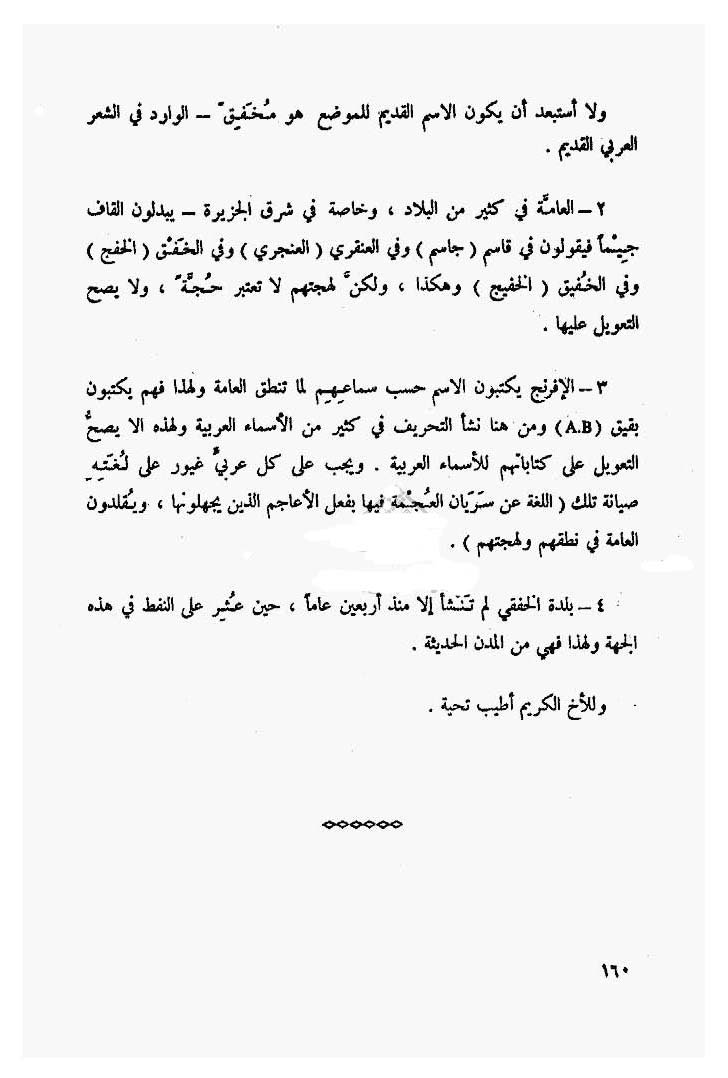 ولا أستبعد أن يكون الاسم القديم للموضع هو مُخَفِّق – الوارد في الشعر
العربي القديم .
٢ – العامَّة في كثير من البلاد ، وخاصة في شرق الجزيرة – يبدلون القاف
جيْماً فيقولون في قاسم ( جاسم ) وفي العنقري ( العنجري ) وفي الخَفْق ( الخفج )
وفي الخُفيق ( الخفيج ) وهكذا ، ولكنَّ لهجتهم لا تعتبر حُجَّةً ، ولا يصح
التعويل عليها .
٣ – الإفرنج يكتبون الاسم حسب سماعِهِم لما تنطق العامة ولهذا فهم يكتبون
بقيق (A.B) ومن هنا نشأ التحريف في كثير من الأسماء العربية ولهذه الا يصحُّ
التعويل على كتاباتهم للأسماء العربية . ويجب على كل عربيٍّ غيور على لُغَتِهِ
صيانة تلك ( اللغة عن سَرَيان العُجْمة فيها بفعل الأعاجم الذين يجهلونها ، ويُقلدون
العامة في نطقهم ولهجتهم ) .
٤ – بلدة الخفقي لم تَنْشأ إلا منذ أربعين عاماً ، حين عُثِر على النفط في هذه
الجهة ولهذا فهي من المدن الحديثة .
وللأخ الكريم أطيب تحية .
١٦٠